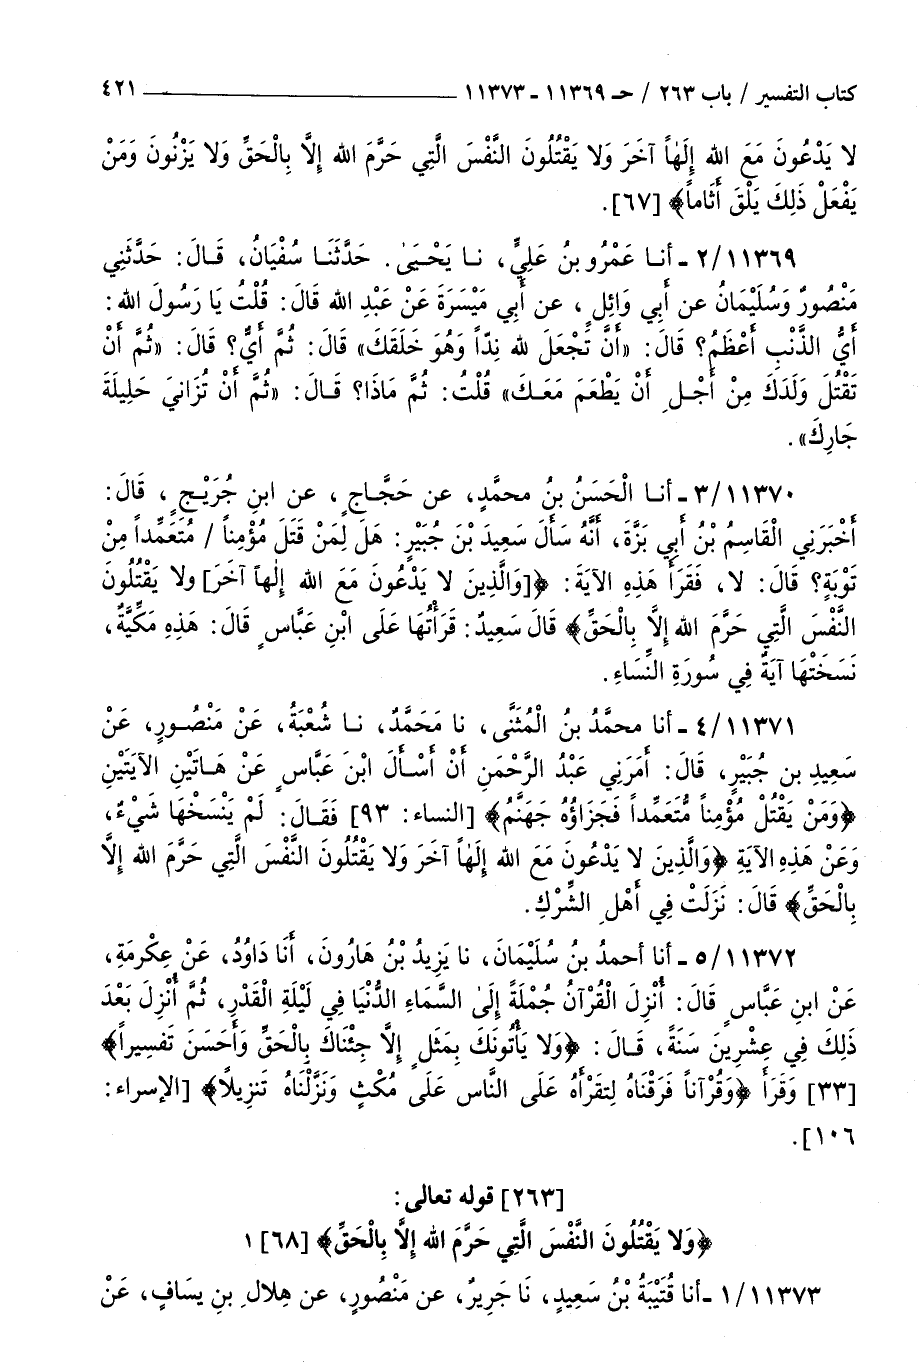 كتاب التفسير / باب ٢٦٣ / حـ ١١٣٦٩ - ١١٣٧٣ ٤٢١
لا يَدْعُونَ مَعَ الله إِلٰهاً آخَرَ وَلا يَقْتُلُونَ النَّفْسَ الَّتِي حَرَّمَ الله إِلاَّ بِالْحَقِّ وَلا يَزْنُونَ وَمَنْ
يَفْعَلْ ذَلِكَ يَلْقَ أَثَاماً﴾ [٦٧].
٢/١١٣٦٩ - أنـا عَمْرُو بنُ عَلِيٍّ، نـا يَحْـيَىٰ. حَدَّثَنَا سُفْيَانُ، قَـالَ: حَدَّثَنِي
مَنْصُورٌ وَسُلَيْمَانُ عن أَبي وَائِلٍ، عن أَبي مَيْسَرَةَ عَنْ عَبْدِ الله قَالَ: قُلْتُ يَا رَسُولَ الله:
أَيُّ الذَّنْبِ أَعْظَمُ؟ قَالَ: «أَنَّ تَجْعَلَ لله نِدّاً وَهُوَ خَلَقَكَ» قَالَ: ثُمَّ أَيٌّ؟ قَالَ: «ثُمَّ أَنْ
تَقْتُلَ وَلَدَكَ مِنْ أَجْـلِ أَنْ يَطْعَمَ مَعَـكَ» قُلْتُ: ثُمَّ مَاذَا؟ قَـالَ: «ثُمَّ أَنْ تُزَانيَ حَلِيلَةَ
جَارِكَ».
٣/١١٣٧٠ - أنـا الْحَسَنُ بنُ محمَّدٍ، عن حَجَّـاجٍ، عن ابنِ جُرَيْـجٍ، قَالَ:
أَخْبَرَنِي الْقَاسِمُ بْنُ أَبِي بَزَّةَ، أَنَّهُ سَأَلَ سَعِيدَ بْنَ جُبَيْرٍ: هَلْ لِمَنْ قَتَلَ مُؤْمِناً / مُتَعَمِّداً مِنْ
تَوْبَةٍ؟ قَالَ: لا، فَقَرَأَ هَذِهِ الآيَةَ: ﴿[وَالَّذِينَ لا يَدْعُونَ مَعَ الله إِلٰهاً آخَرَ] ولا يَقْتُلُونَ
النَّفْسَ الَّتِي حَرَّمَ الله إِلاَّ بِالْحَقِّ﴾ قَالَ سَعِيدٌ: قَرَأْتُهَا عَلَى ابْنِ عَبَّاسٍ قَالَ: هَذِهِ مَكِّيَّةٌ،
نَسَخَتْهَا آيَةٌ فِي سُورَةِ النِّسَاءِ.
٤/١١٣٧١ - أنا محمَّدُ بنُ الْمُثَنَّى، نا مَحَمَّدٌ، نـا شُعْبَةُ، عَنْ مَنْصُـورٍ، عَنْ
سَعِيدِ بنِ جُبَيْرٍ، قَالَ: أَمَرَنِي عَبْدُ الرَّحْمَنِ أَنْ أَسْـأَلَ ابْنَ عَبَّاسٍ عَنْ هَـاتَيْنِ الآيَتَيْنِ
﴿وَمَنْ يَقْتُلْ مُؤْمِناً مُّتَعَمِّداً فَجَزَاؤُه جَهَنَّمُ﴾ [النساء: ٩٣] فَقَـالَ: لَمْ يَنْسَخْهَا شَيْءٌ،
وَعَنْ هَذِهِ الآيَةِ ﴿وَالَّذِينَ لا يَدْعُونَ مَعَ الله إِلَهاً آخَرَ وَلا يَقْتُلُونَ النَّفْسَ الَّتِي حَرَّمَ الله إِلاَّ
بِالْحَقِّ﴾ قَالَ: نَزَلَتْ فِي أَهْلِ الشِّرْكِ.
٥/١١٣٧٢ - أنا أحمدُ بنُ سُلَيْمَانَ، نا يَزِيدُ بْنُ هَارُونَ، أَنَا دَاوُدُ، عَنْ عِكْرمَةِ،
عَنْ ابنِ عَبَّاسٍ قَالَ: أُنْزِلَ الْقُرْآنُ جُمْلَةً إِلىٰ السَّمَاءِ الدُّنْيَا فِي لَيْلَةِ الْقَدْرِ، ثُمَّ أُنْزِلَ بَعْدَ
ذَلِكَ فِي عِشْرِينَ سَنَةً، قَـالَ: ﴿وَلا يَأْتُونَكَ بِمَثَلٍ إِلاَّ جِئْنَاكَ بِالْحَقِّ وَأَحْسَنَ تَفْسِيراً﴾
[٣٣] وَقَرَأَ ﴿وَقُرْآناً فَرَقْنَاهُ لِتقرْأَهُ عَلَى النَّاسِ عَلَى مُكْثٍ وَنَزَّلْنَاهُ تَنزِيلاً﴾ [الإسراء:
١٠٦].
[٢٦٣] قوله تعالى:
﴿وَلا يَقْتُلُونَ النَّفْسَ الَّتِي حَرَّمَ الله إِلاَّ بِالْحَقِّ﴾ [٦٨] ١
١/١١٣٧٣ -أنا قُتَيْبَةُ بْنُ سَعِيدٍ، نَا جَرِيرٌ، عن مَنْصُورٍ، عن هِلالِ بنِ يسَافٍ، عَنْ